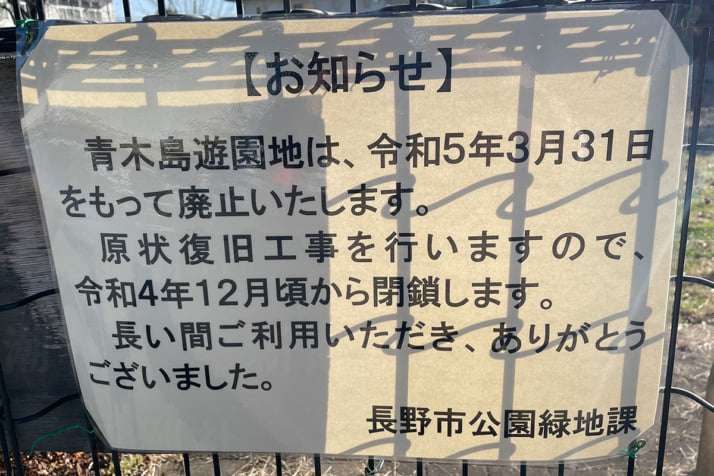 【お知らせ】
青木島遊園地は、令和5年3月31日
をもって廃止いたします。
原状復旧工事を行いますので、
令和4年12月頃から閉鎖します。
長い間ご利用いただき、ありがとう
ございました。
長野市公園緑地課